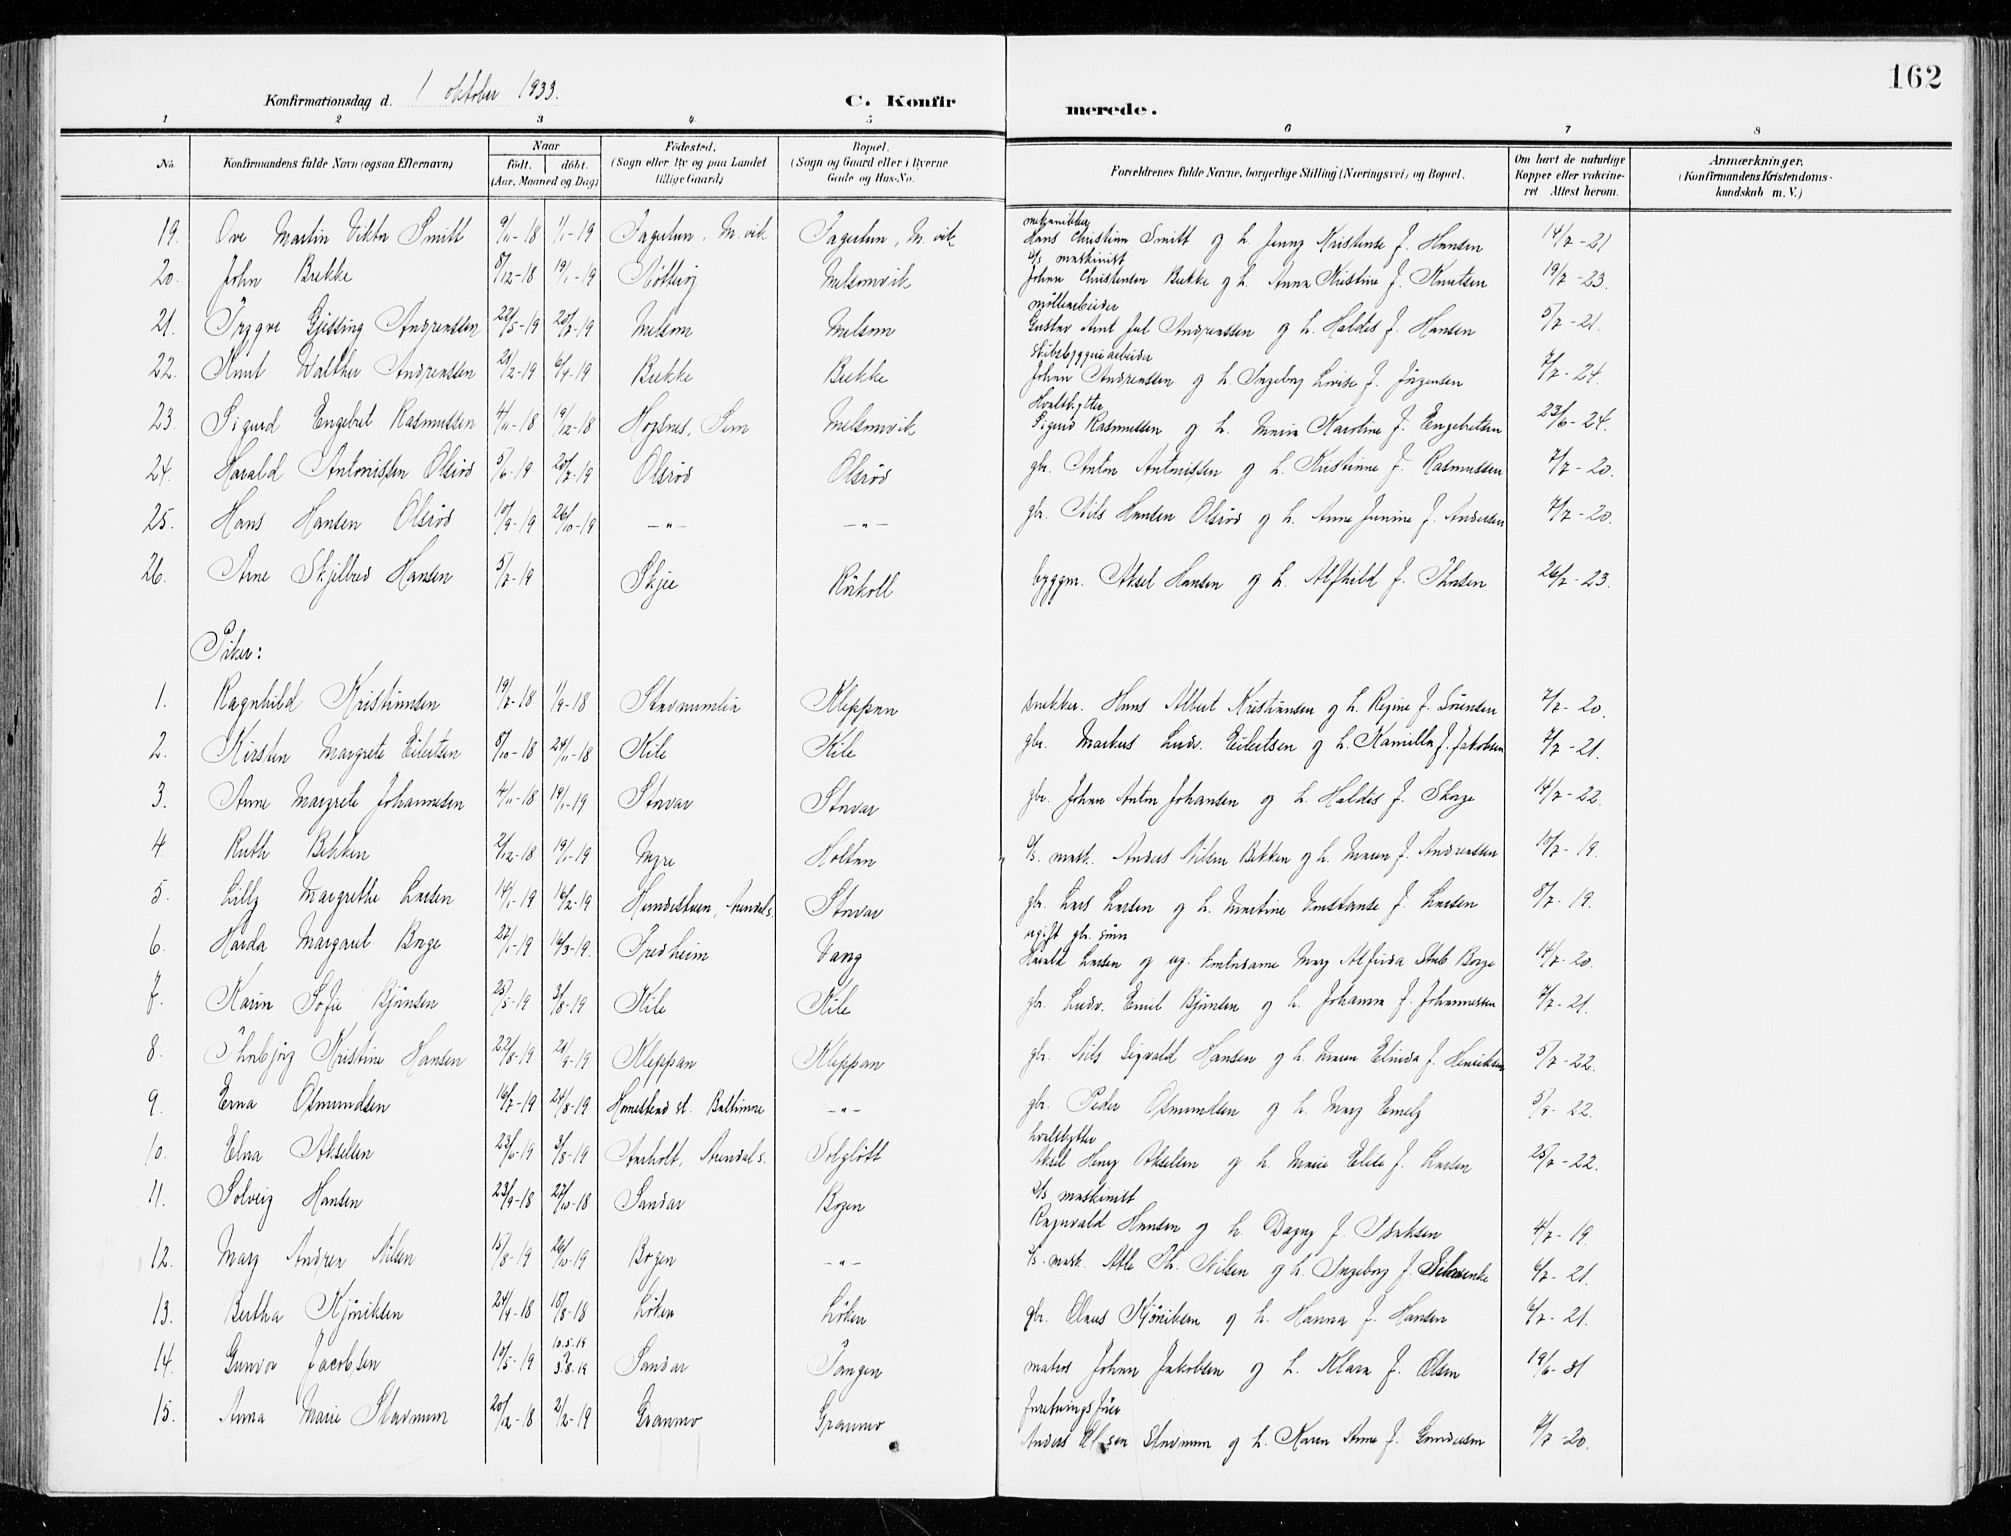 162
Konfirmationsdag d. 1 oktober 1933.
C. Konfirmerede.
1 2 3 4 5 6 7 8
No. Konfirmandens fulde Navn (ogsaa Efternavn) Naar født. døbt. (Aar, Maaned og Dag) Fødested. (Sogn eller By og paa Landet tillige Gaard) Bopæl. (Sogn og Gaard eller i Byerne Gade og Hus-No. Forældrenes fulde Navne, borgerlige Stilling (Næringsvei) og Bopæl. Om havt de naturlige Kopper eller vakcineret Attest herom. Anmærkninger. (Konfirmandens Kristendomskundskab m. V.)
mekaniker
19. Ove Martin Viktor Smitt 9/11-18 1/1-19 Fagertun, M.vik Fagertun, M.vik Hans Christian Smitt og h. Jenny Kristense f. Hansen 14/7-21
maskinist
20. John Bekke 8/12-18 19/1-19 Melsomvik Johan Christensen Bekke og h. Anna Kristine f. Knutsen 19/7-23.
møllearbeider
21. Trygve Gjessing Andreassen 22/5-19 20/7-19 Melsom Melsom Gustav Amt Jul Andreassen og h. Haldis f. Hansen 5/7-21.
skibsbyggeriarbeider
22. Knut Walther Andreassen 21/2-19 6/4-19 Bekke Bekke Johan Andreassen og h. Ingeborg Lovise f. Jörgensen 7/7-24.
Hvalskytter
23. Sigurd Engebret Rasmussen 4/11-18 19/12-18 Hogsnes, Sem Melsomvik Sigurd Rasmussen og h. Maria Karoline f. Engebretsen 23/6-24.
24. Harald Antonissen Olsrød 5/6-19 20/7-19 Olsrød Olsrød gbr. Anton Antonissen og h. Kristinne f. Rasmussen 7/7-20.
25. Hans Hansen Olsrød 10/9-19 26/10-19 -"- -"- gbr. Nils Hansen Olsrød og h. Anne Jenine f. Andersen 7/7-20.
26. Arne Skjelbred Hansen 5/7-19 Skjee Råkoll byggm. Aksel Hansen og h. Alfhild f. Thorsen 26/7-23.
Piker:
1. Ragnhild Kristiansen 19/7-18 1/9-18 Stavnumlia Kleppan snekker. Hans Albert Kristiansen og h. Regine f. Sörensen 7/7-20.
2. Kirsten Margrete Eilertsen 8/10-18 24/11-18 Kile Kile gbr. Markus Ludv. Eilertsen og h. Kamilla f. Jakobsen 7/7-21.
3. Anne Margrete Johannesen 4/11-18 19/1-19 Storvar Storvar gbr. Johan Anton Johansen og h. Haldis f. Skorge 14/7-22.
4. Ruth Bekken 2/12-18 19/1-19 Myre Holtan mask. Anders Nilsen Bekken og h. Maren f. Andreassen 10/7-19.
5. Lilly Margrethe Larsen 14/1-19 16/2-19 Hundestuen, Arendals. Storvar gbr. Lars Larsen og h. Martine Constanse f. Larsen 8/7-19.
ugift gbr. sønn
6. Harda Margaret Borge 27/1-19 16/3-19. Fredheim Vang Harald Larsen og ug. kontordame Mary Alfrida Stub Borge 14/7-20.
7. Karin Sofie Bjönsen 25/5-19 3/8-19 Kile Kile gbr. Ludv. Emil Bjönsen og h. Johanna f. Johannessen 7/7-21.
8. Thorbjørg Kristine Hansen 22/8-19 21/9-19 Kleppan Kleppan gbr. Nils Sigvald Hansen og h. Maren Elinda f. Henriksen 5/7-22.
9. Erna Osmundsen 16/7-19 24/8-19 Homestead st. Baltimore -"- gbr. Peder Osmundsen og h. Mary Emely 5/9-22.
hvalskytter
10. Elna Akselsen 23/6-19 3/8-19 Arholt, Arendals. Solgløtt Aksel Henry Akselsen og h. Marie Elise f. Larsen 25/7-22.
maskinist
11. Solveig Hansen 23/9-18 27/10-18 Sandar Bogen Ragnvald Hansen og h. Dagny f. Isaksen 4/7-19.
12. Mary Andrea Nilsen 15/8-19 26/10-19 Bogen -"- mask. Atle Th. Nilsen og h. Ingeborg f. 6/7-21.
13. Bertha Kjøniksen 24/4-18 18/8-18 Løken Løken gbr. Olaus Kjøniksen og h. Hanna f. Hansen 6/7-21.
14. Gunvor Jacobsen 10/5-19 10.5.19 3.8.19 Sandar Tangen matros Johan Jakobsen og h. Klara f. Olsen 19/6-31
Forretningsfører
15. Anna Marie Stavnum 20/12-18 2/2-19 Granmo Granmo Anders Olsen Stavnum og h. Karen Anne f. Gundersen 7/7-20.